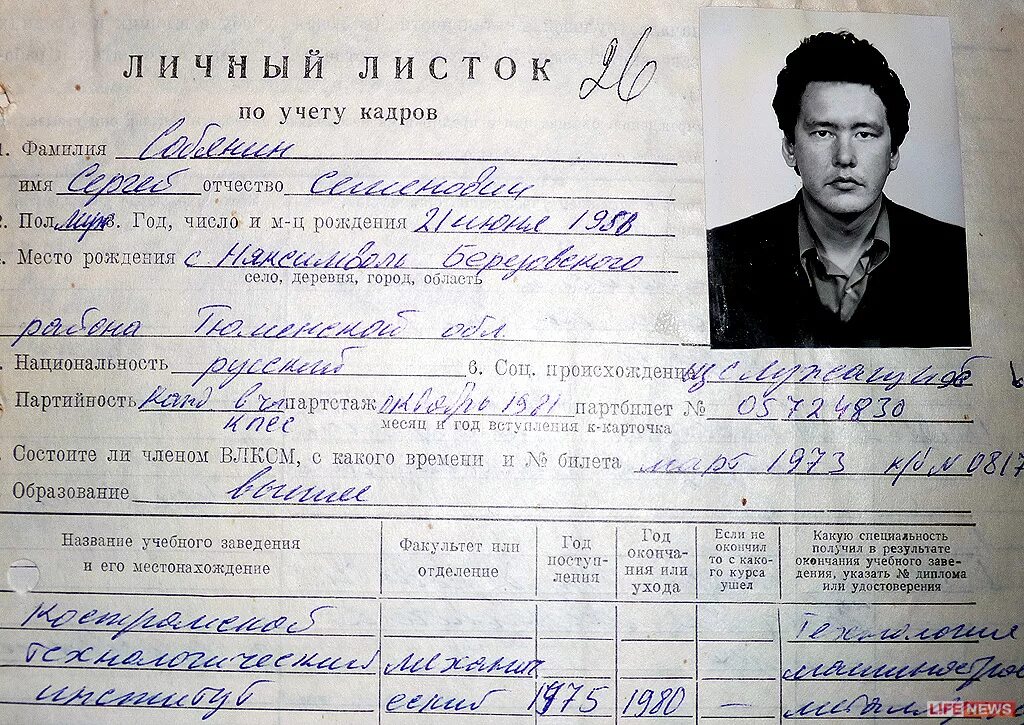 26
ЛИЧНЫЙ ЛИСТОК
по учету кадров
1. Фамилия Собянин
имя Сергей отчество Семенович
2. Пол муж. 3. Год, число и м-ц рождения 21 июня 1958
Место рождения с Няксимволь Березовского
село, деревня, город, область
района Тюменской обл.
Национальность русский 6. Соц. происхождение из служащих
Партийность канд в чл партстаж октябрь 1981 партбилет № 05724830
КПСС месяц и год вступления к-карточка
Состоите ли членом ВЛКСМ, с какого времени и № билета март 1973 к/б № 0817
Образование высшее
Название учебного заведения и его местонахождение
Факультет или отделение
Год поступ-ления
Год оконча-ния или ухода
Если не окончил то с како-го курса ушел
Какую специальность получил в результате окончания учебного заве-дения, указать № диплома или удостоверения
Костромской Технология
технологический механич машинострое
институт еский 1975 1980 —
LIFE NEWS